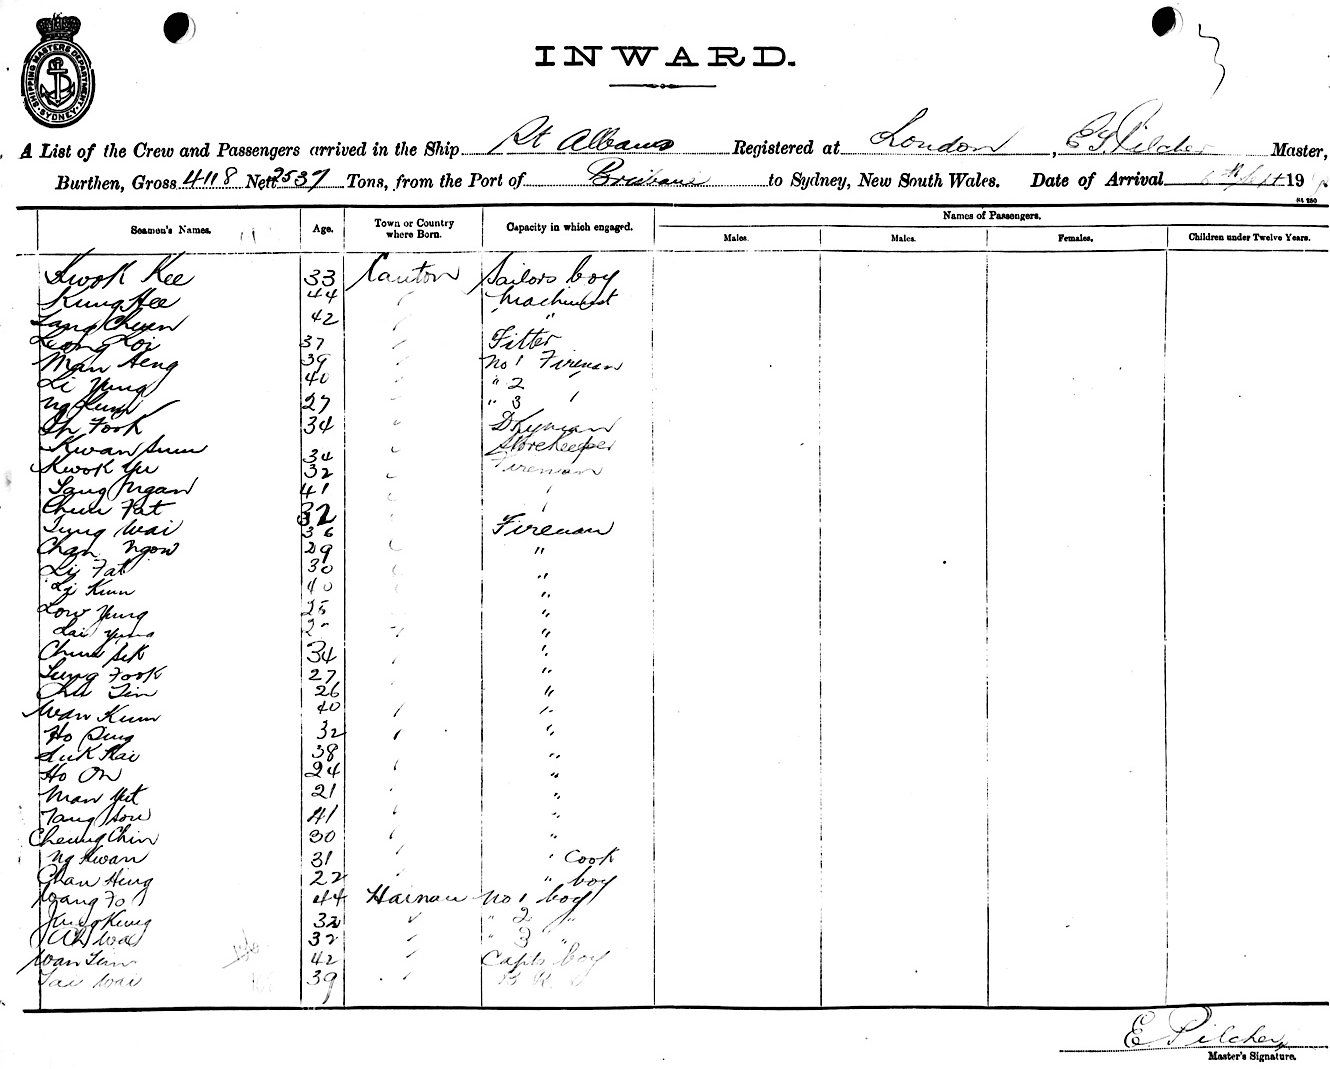 SHIPPING MASTERS DEPARTMENT SYDNEY
INWARD.
A List of the Crew and Passengers arrived in the Ship St Albans Registered at London, E Pilcher Master,
Burthen, Gross 4118 Nett 2537 Tons, from the Port of Brisbane to Sydney, New South Wales. Date of Arrival 6th Sept 19
Seamen's Names. Age. Town or Country where Born. Capacity in which engaged. Names of Passengers.
Males. Males. Females. Children under Twelve Years.
Kwok Kee 33 Canton Sailors boy
Kung Hee 44 " Machinist
42 " "
Leong Loi 37 " Fitter
Man Heng 39 " No 1 Fireman
Li Yung 40 " " 2
27 " " 3 "
Fook 34 "
Kwan 34 " Storekeeper
Kwok Yu 32 " Fireman
Ngan 41 " "
Chun Fat 32 " "
Tung Wai 36 Fireman
Chan Ngow 29 " "
Li Fat 30 " "
Li Kun 40 " "
Low Yung 25 "
Lai Yung "
Chun Sik 34 " "
Fook 27 "
26 "
Wan Kum 40 " "
Ho Sing 32 " "
38 "
Ho On 24 " "
Man Yit 21 " "
Tang 41 " "
Cheung Chin 30 " "
Ng Kwan 31 " " Cook
Chan Hing 22 " " boy
Wang Fo 44 Hainan No 1 boy
Kung 32 " " 2 "
Ah Wai 32 " " 3 "
Wan 42 " Capts boy
Wai 39 "
E Pilcher
Master's Signature.